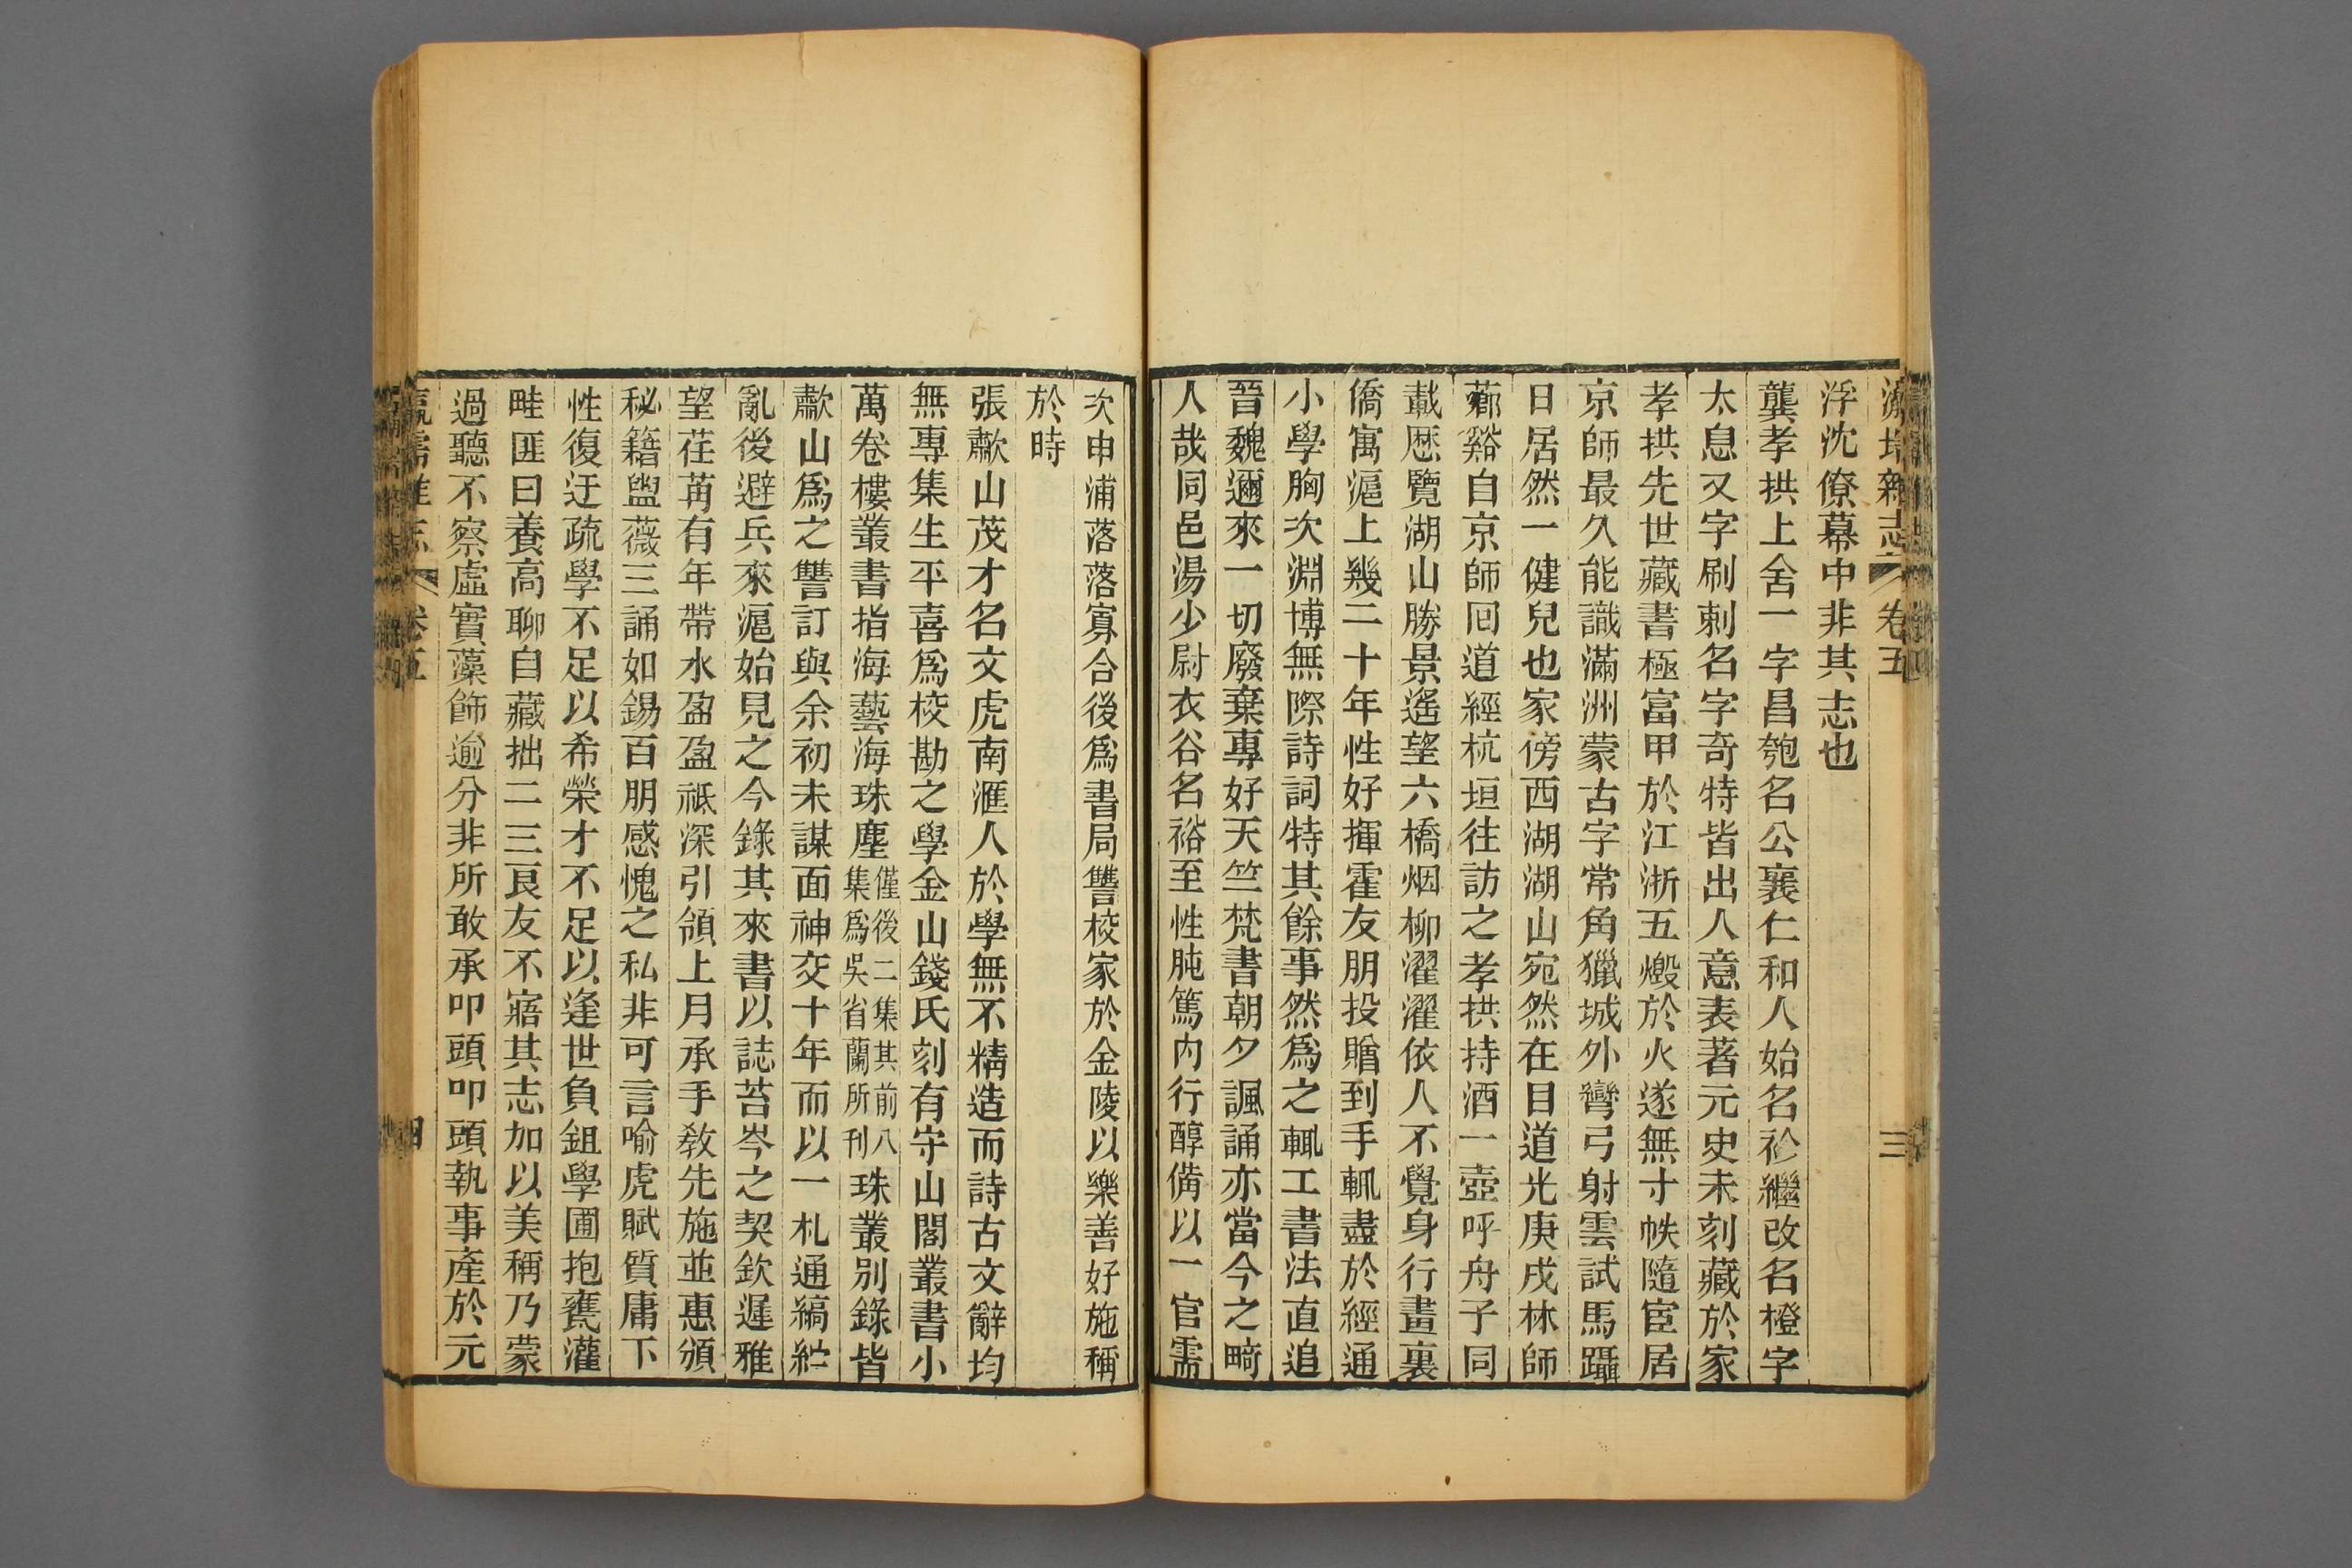 瀛壖雜志 卷五 三
浮沈僚幕中非其志也
龔孝拱上舍一字昌匏名公襄仁和人始名袗繼改名橙字
太息又字刷剌名字奇特皆出人意表著元史未刻藏於家
孝拱先世藏書極富甲於江浙五燬於火遂無寸帙隨宦居
京師最久能識滿洲蒙古字常角獵城外彎弓射雲試馬躡
日居然一健兒也家傍西湖湖山宛然在目道光庚戌林師
薌谿自京師回道經杭垣往訪之孝拱持酒一壺呼舟子同
載歷覽湖山勝景遙望六橋烟柳濯濯依人不覺身行畫裏
僑寓滬上幾二十年性好揮霍友朋投贈到手輒盡於經通
小學胸次淵博無際詩詞特其餘事然爲之輒工書法直追
晉魏邇來一切廢棄專好天竺梵書朝夕諷誦亦當今之畸
人哉同邑湯少尉衣谷名裕至性肫篤內行醇備以一官需
次申浦落落寡合後爲書局讐校家於金陵以樂善好施稱
於時
張歗山茂才名文虎南滙人於學無不精造而詩古文辭均
無專集生平喜爲校勘之學金山錢氏刻有守山閣叢書小
萬卷樓叢書指海藝海珠塵僅後二集其前八集爲吳省蘭所刊珠叢別錄皆
歗山爲之讐訂與余初未謀面神交十年而以一札通縞紵
亂後避兵來滬始見之今錄其來書以誌苔岑之契欽遲雅
望荏苒有年帶水盈盈祗深引領上月承手敎先施並惠頒
秘籍盥薇三誦如錫百朋感愧之私非可言喻虎賦質庸下
性復迂疏學不足以希榮才不足以逢世負鉏學圃抱甕灌
畦匪曰養高聊自藏拙二三良友不寤其志加以美稱乃蒙
過聽不察虛實藻飾逾分非所敢承叩頭叩頭執事產於元
瀛壖雜志 卷五 四